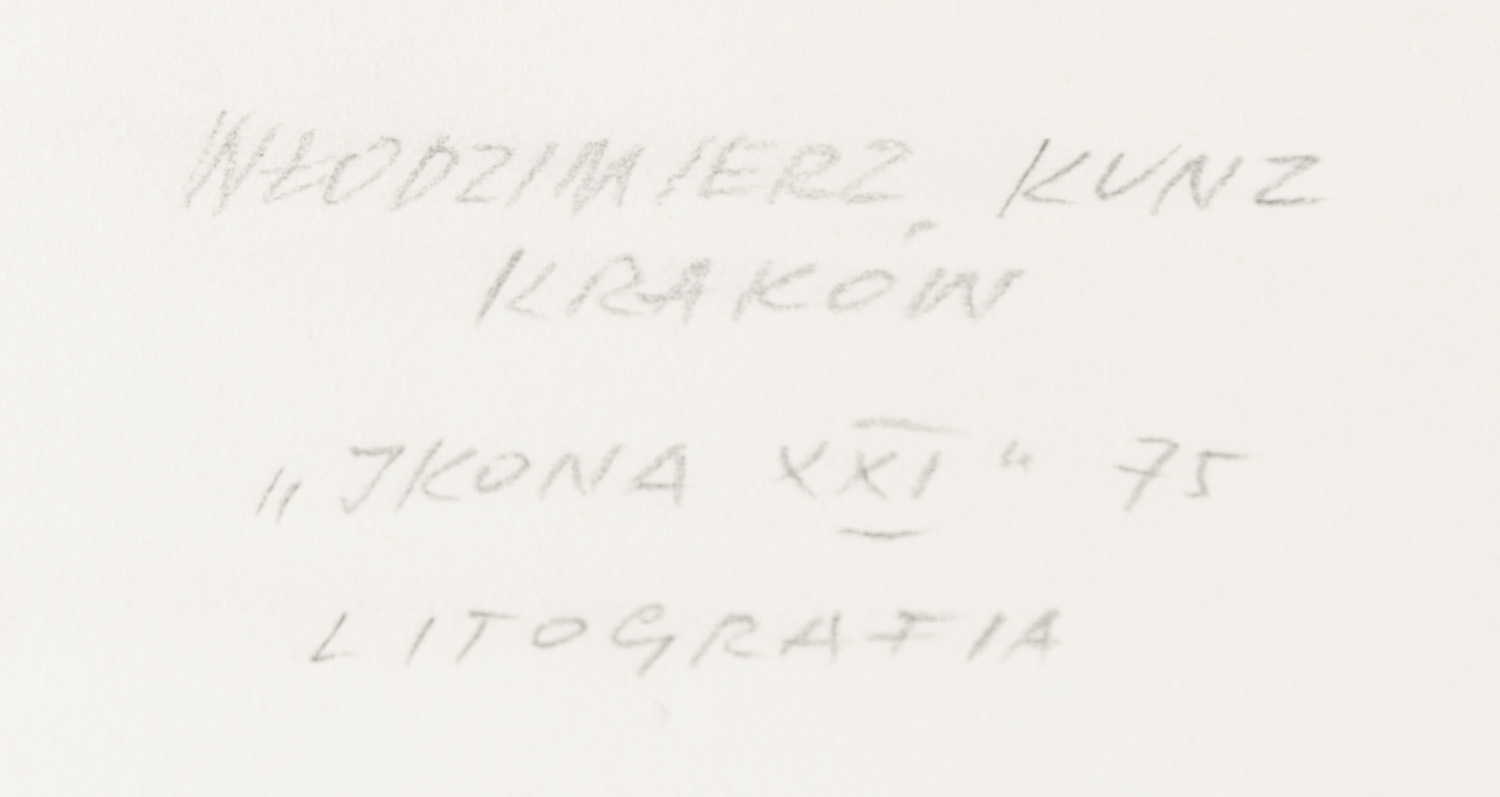 WŁODZIMIERZ KUNZ
KRAKÓW
„JKONA XXI“ 75
LITOGRAFIA